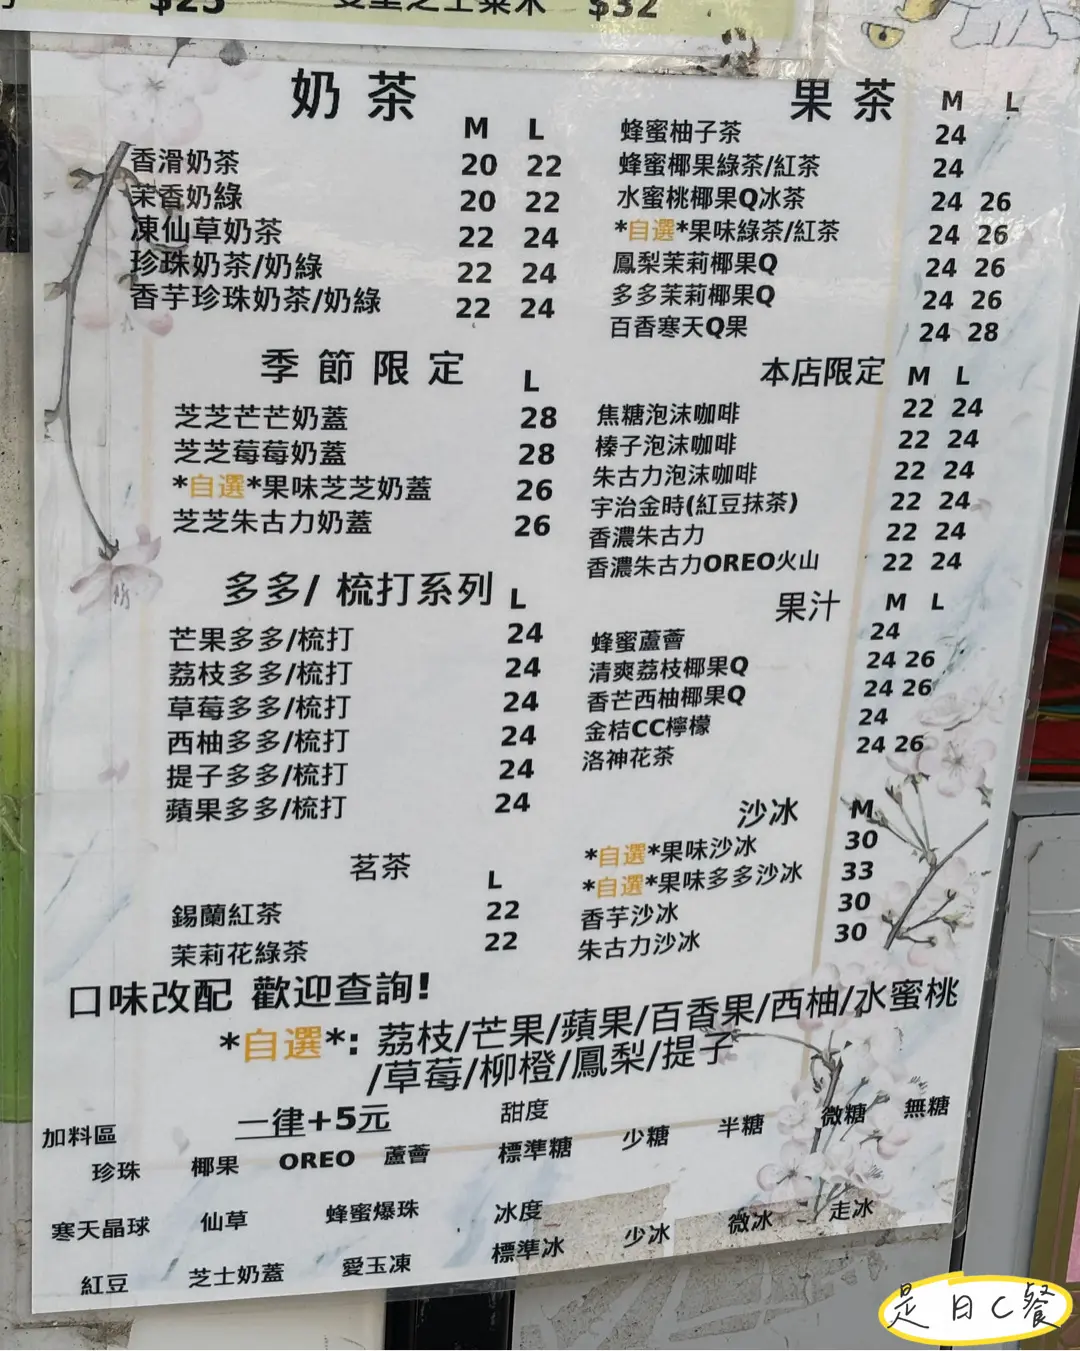 $25
$32
奶茶
M L
香滑奶茶 20 22
茉香奶綠 20 22
凍仙草奶茶 22 24
珍珠奶茶/奶綠 22 24
香芋珍珠奶茶/奶綠 22 24
季節限定
L
芝芝芒芒奶蓋 28
芝芝莓莓奶蓋 28
*自選*果味芝芝奶蓋 26
芝芝朱古力奶蓋 26
多多/梳打系列 L
芒果多多/梳打 24
荔枝多多/梳打 24
草莓多多/梳打 24
西柚多多/梳打 24
提子多多/梳打 24
蘋果多多/梳打 24
茗茶
L
錫蘭紅茶 22
茉莉花綠茶 22
果茶 M L
蜂蜜柚子茶 24
蜂蜜椰果綠茶/紅茶 24
水蜜桃椰果Q冰茶 24 26
*自選*果味綠茶/紅茶 24 26
鳳梨茉莉椰果Q 24 26
多多茉莉椰果Q 24 26
百香寒天Q果 24 28
本店限定 M L
焦糖泡沫咖啡 22 24
榛子泡沫咖啡 22 24
朱古力泡沫咖啡 22 24
宇治金時(紅豆抹茶) 22 24
香濃朱古力 22 24
香濃朱古力OREO火山 22 24
果汁 M L
蜂蜜蘆薈 24
清爽荔枝椰果Q 24 26
香芒西柚椰果Q 24 26
金桔CC檸檬 24
洛神花茶 24 26
沙冰 M
*自選*果味沙冰 30
*自選*果味多多沙冰 33
香芋沙冰 30
朱古力沙冰 30
口味改配 歡迎查詢!
*自選*: 荔枝/芒果/蘋果/百香果/西柚/水蜜桃
/草莓/柳橙/鳳梨/提子
加料區 一律+5元
珍珠 椰果 OREO 蘆薈
寒天晶球 仙草 蜂蜜爆珠
紅豆 芝士奶蓋 愛玉凍
甜度
標準糖 少糖 半糖 微糖 無糖
冰度
標準冰 少冰 微冰 走冰
是日C餐